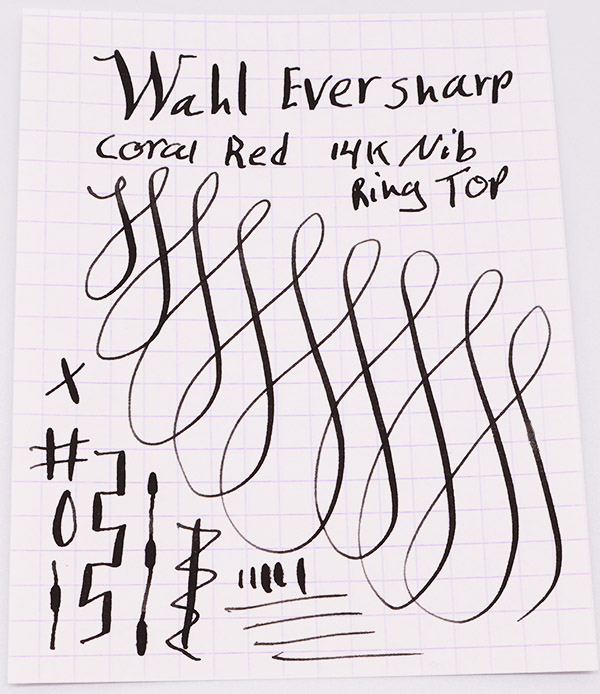 Wahl Eversharp
Coral Red 14K Nib
Ring Top
x
#
0